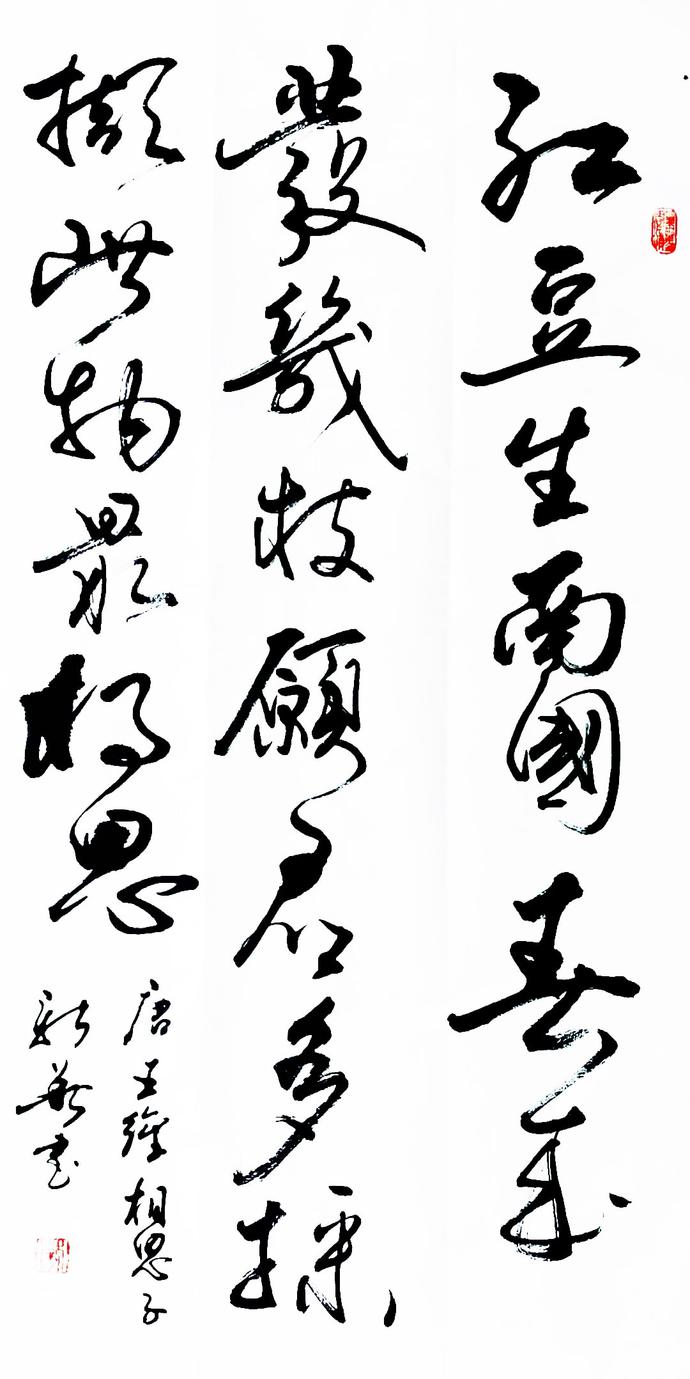 紅豆生南國春来
發幾枝願君多採
擷此物最相思
唐王維相思子
新華書